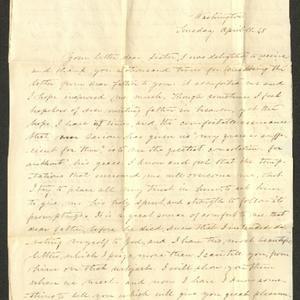 Washington
Tuesday April 11. 48
Your letter dear sister, I was delighted to receive
and thank you a thousand times for the
letter from dear father to you. I
I hope improved me much. Though sometimes I feel
hopeless of ever meeting father in heaven, yet the
hope, I have at times, and the comfortable assurance
that our Saviour has given us "my grace is suffi-
cient for thee" is the greatest consolation for
without his grace I know and feel that the temp-
tations that surround me will overcome me, but
I try to place all my trust in him & ask him
to give me his holy spirit and strength to follow its
promptings. It is a great source of comfort to me that
dear father, before he died, knew that I intended de-
voting myself to God, and I have two most beautiful
letters, which I prize more than I can tell you, from
him on that subject. I will show you them
when we meet. and now I have some
thing to tell you which will give you great pleasure